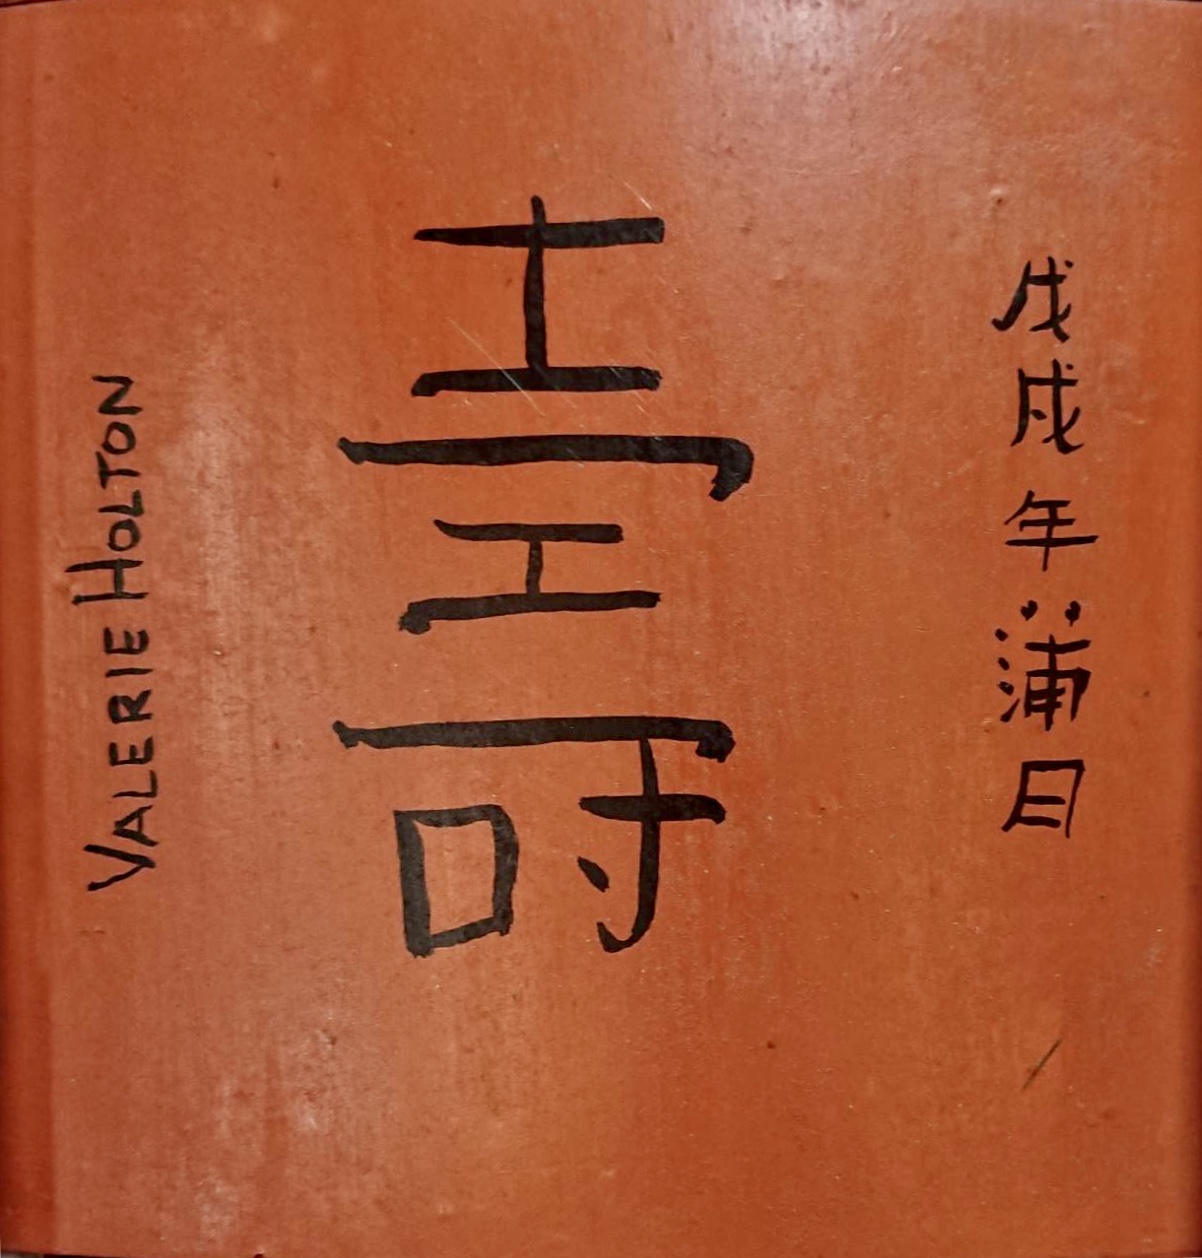 戊戌年蒲月
壽
VALERIE HOLTON